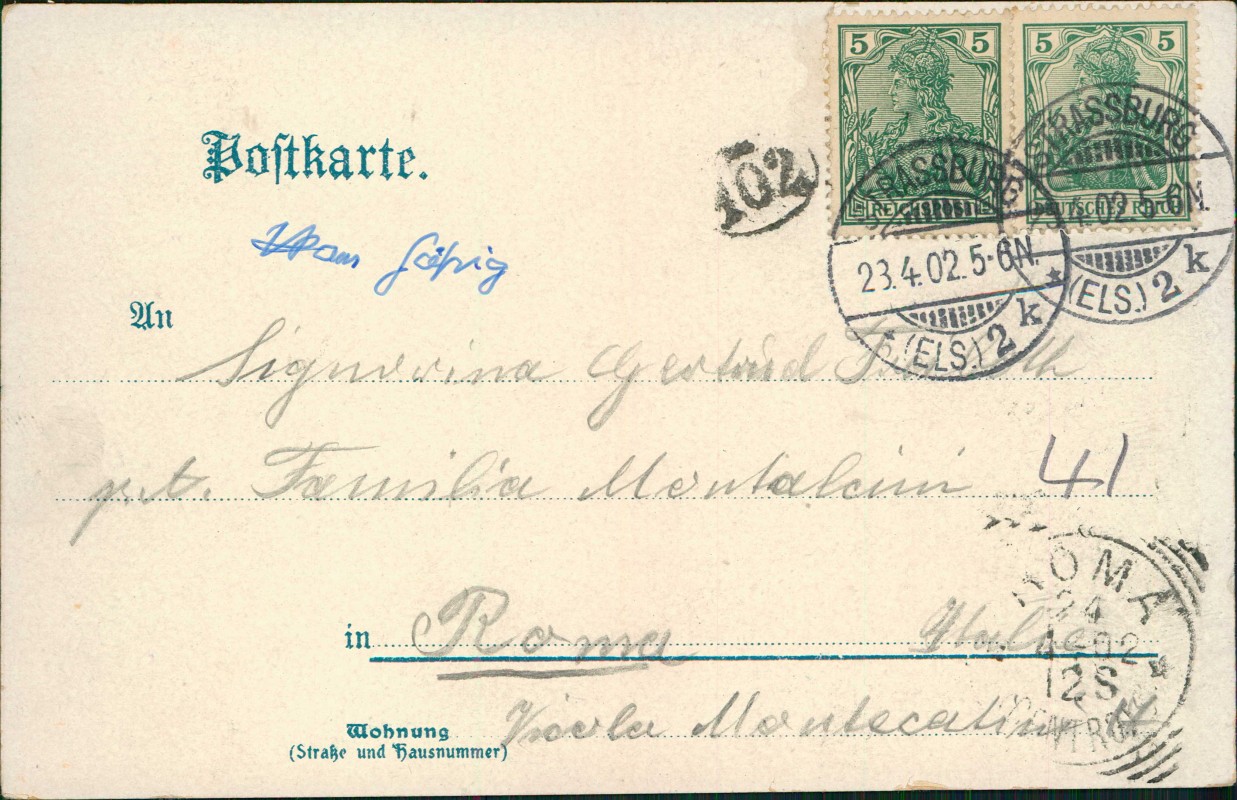 5 5 5 5
REICHSPOST
Postkarte.
102
STRASSBURG
23.4.02.5-6N.
* (ELS.) 2 k
STRASSBURG
4.02.5-6N.
* (ELS.) 2 k
An
Signorina Gertrud
p.t. Familia Montalcini 41
in Roma Italie
Wohnung
(Straße und Hausnummer)
Vicolo Montecatini
ROMA
24
4-02
12S